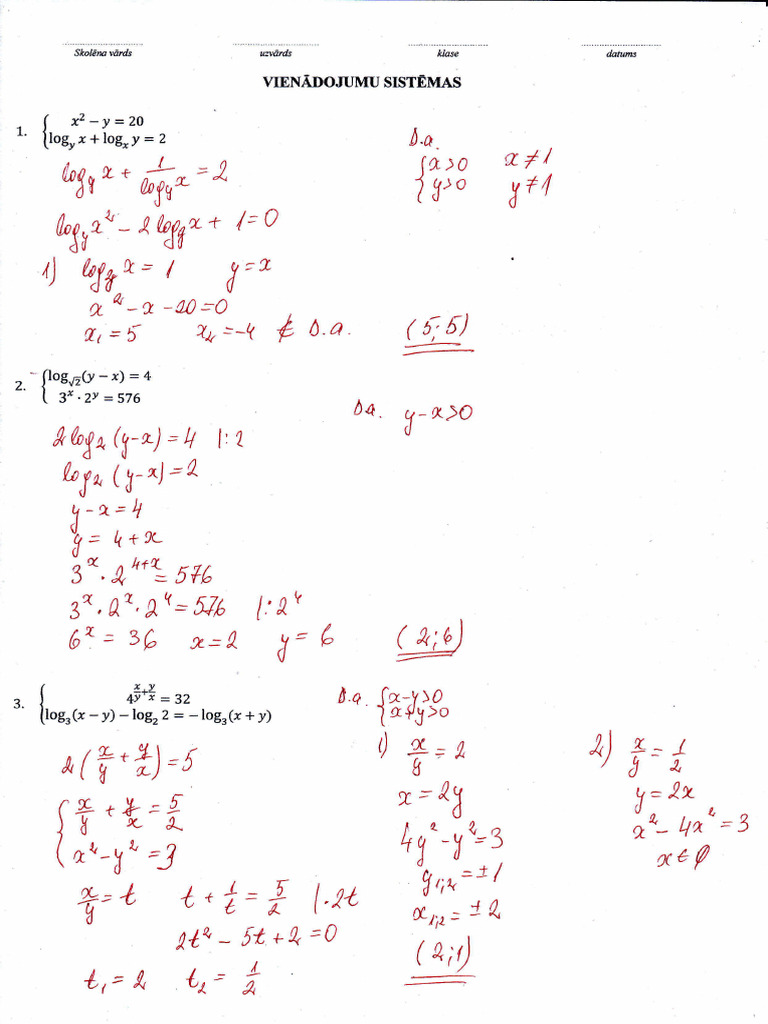 Skolēna vārds uzvārds klase datums
VIENĀDOJUMU SISTĒMAS
1. { x² − y = 20
log_y x + log_x y = 2
D.a.
{ x>0 x≠1
y>0 y≠1
log_y x + 1/(log_y x) = 2
log_y x² − 2 log_y x + 1 = 0
1) log_y x = 1 y = x
x² − x − 20 = 0
x₁ = 5 x₂ = −4 ∉ D.a. (5;5)
2. { log_√2 (y − x) = 4
3ˣ · 2ʸ = 576
D.a. y−x>0
2 log₂ (y−x) = 4 |:2
log₂ (y−x) = 2
y − x = 4
y = 4 + x
3ˣ · 2⁴⁺ˣ = 576
3ˣ · 2ˣ · 2⁴ = 576 |:2⁴
6ˣ = 36 x = 2 y = 6 (2;6)
3. { 4^(x/y + y/x) = 32
log₃(x − y) − log₂ 2 = − log₃(x + y)
D.a. { x−y>0
x+y>0
2(x/y + y/x) = 5
{ x/y + y/x = 5/2
x² − y² = 3
x/y = t t + 1/t = 5/2 |·2t
2t² − 5t + 2 = 0
t₁ = 2 t₂ = 1/2
1) x/y = 2
x = 2y
4y² − y² = 3
y₁;₂ = ±1
x₁;₂ = ±2
(2;1)
2) x/y = 1/2
y = 2x
x² − 4x² = 3
x ∈ ∅